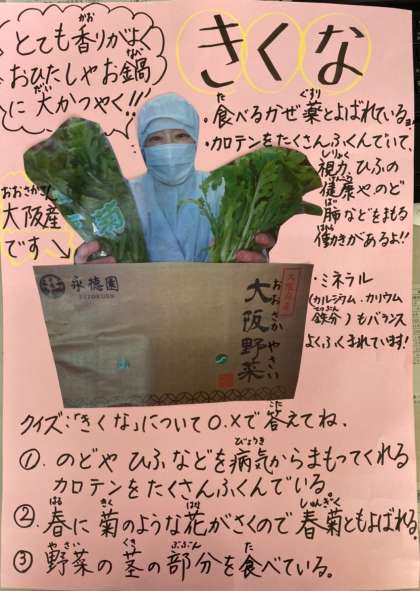 きくな
とても香りがよく
おひたしやお鍋
に大かつやく!!
・食べるかぜ薬とよばれているョ。
・カロテンをたくさんふくんでいて、
視力、ひふの
健康や、のど
肺などをまもる
働きがあるよ!!
大阪産
です
・ミネラル
(カルシウム・カリウム
鉄分)もバランス
よくふくまれています!
永徳園
EITOKUEN
大阪野菜
おおさかやさい
クイズ:「きくな」について○.×で答えてね。
①.のどやひふなどを病気からまもってくれる
カロテンをたくさんふくんでいる
②.春に菊のような花がさくので春菊ともよばれる。
③.野菜の茎の部分を食べている。